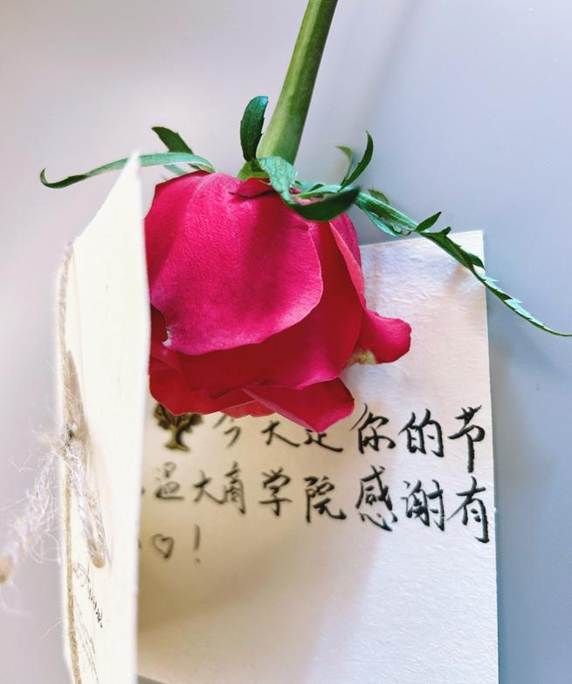 今天是你的节
温大商学院感谢有
♡！